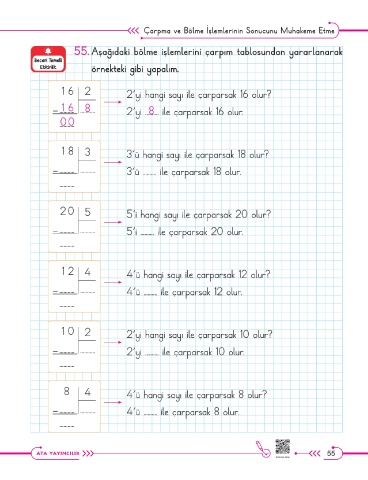 Çarpma ve Bölme İşlemlerinin Sonucunu Muhakeme Etme
Beceri Temelli Etkinlik
55. Aşağıdaki bölme işlemlerini çarpım tablosundan yararlanarak
örnekteki gibi yapalım.
16 2
2'yi hangi sayı ile çarparsak 16 olur?
– 16 8
2'yi 8 ile çarparsak 16 olur.
00
18 3
3'ü hangi sayı ile çarparsak 18 olur?
– ..... .....
3'ü ..... ile çarparsak 18 olur.
.....
20 5
5'i hangi sayı ile çarparsak 20 olur?
– ..... .....
5'i ..... ile çarparsak 20 olur.
.....
12 4
4'ü hangi sayı ile çarparsak 12 olur?
– ..... .....
4'ü ..... ile çarparsak 12 olur.
.....
10 2
2'yi hangi sayı ile çarparsak 10 olur?
– ..... .....
2'yi ..... ile çarparsak 10 olur.
.....
8 4
4'ü hangi sayı ile çarparsak 8 olur?
– ..... .....
4'ü ..... ile çarparsak 8 olur.
.....
ATA YAYINCILIK
55